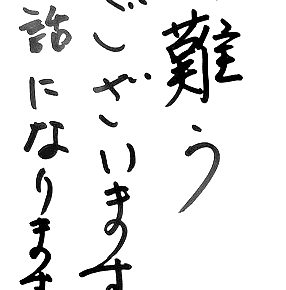 難う
ございます
詰になります